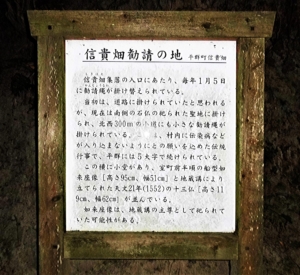 信貴畑勧請の地 平群町信貴畑
信貴畑集落の入口にあたり、毎年1月5日
に勧請縄が掛け替えられている。
当初は、道路に掛けられていたと思われる
が、現在は南側の石仏の祀られた聖地に掛け
られ、北西300mの小塙にも小さな勧請縄が
掛けられている。 は、村内に伝染病など
が入り込まないようにとの願いを込めた伝統
行事で、平群には5大字で続けられている。
この横に小堂があり、室町前半頃の船型如
来座像[高さ95cm、幅51cm]と地蔵講により
立てられた天文21年(1552)の十三仏[高さ11
9cm、幅62cm]が並んでいる。
如来座像は、地蔵講の主尊として祀られて
いた可能性がある。